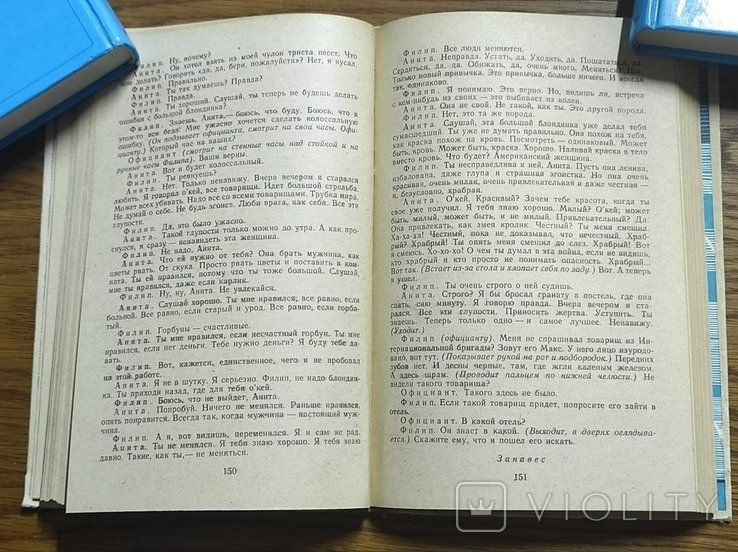 Филип. Ну, почему?
Анита. Он хотел взять из моей чулок триста песет. Что
мне делать? Говорять «да, да, бери, пожалуйста»? Нет, и кусал.
Филип. Правильно.
Анита. Ты так думаешь? Правда?
Филип. Правда.
Анита. Ты хороший. Слушай, ты теперь не будешь делать
ошибки с большой блондинка?
Филип. Знаешь, Анита,— боюсь, что буду. Боюсь, что в
этом-то вся беда! Мне ужасно хочется сделать колоссальную
ошибку. (Он подзывает официанта, смотрит на свои часы. Офи-
цианту.) Который час на ваших?
Официант (смотрит на стенные часы над стойкой и на
ручные часы Филипа). Ваши верны.
Анита. Вот и будет колоссальный.
Филип. Ты ревнуешь?
Анита. Нет. Только ненавижу. Вчера вечером я старался
любить. Я говорил о'кей, все товарищи. Идет большой стрельба.
Может всех убивать. Надо со всеми товарищами. Трубка мира.
Не думай о себе. Не будь эгоист. Люби врага, как себя. Все эти
глупости.
Филип. Да, это было ужасно.
Анита. Такой глупости только можно до утра. А как про-
спулся, я сразу — ненавидеть эта женщина.
Филип. Не надо, Анита.
Анита. Что ей нужно от тебя? Она брать мужчина, как
цветы рвать. От скука. Просто рвать цветы и поставить в ком-
ната. Ты ей нравился, потому что ты тоже большой. Слушай,
мне ты нравился, даже если карлик.
Филип. Ну, ну, Анита. Не увлекайся.
Анита. Слушай хорошо. Ты мне нравился, все равно, если
больной. Все равно, если старый и урод. Все равно, если горба-
тый.
Филип. Горбуны — счастливые.
Анита. Ты мне нравился, если несчастный горбун. Ты мне
нравился, если нет деньги. Тебе нужно деньги? Я буду тебе да-
вать.
Филип. Вот, кажется, единственное, чего я не пробовал
на этой работе.
Анита. Я не в шутку. Я серьезно. Филип, не надо блондин-
ка. Ты приходи назад, где для тебя о'кей.
Филип. Боюсь, что не выйдет, Анита.
Анита. Попробуй. Ничего не менялся. Раньше нравился,
опять понравится. Всегда так, когда мужчина — настоящий муж-
чина.
Филип. А я, вот видишь, переменился. Я и сам не рад.
Анита. Ты не менялся. Я тебя знаю хорошо. Я тебя знаю
давно. Такие, как ты,— не меняться.
150
Филип. Все люди меняются.
Анита. Неправда. Устать, да. Уходить, да. Пошататься, да.
Сердиться, да, да. Обижать, да, очень много. Меняться? Нет.
Только новый привычка. Это привычка, больше ничего. И всегда
так, одинаково.
Филип. Я понимаю. Это верно. Но, видишь ли, встреча
с кем-нибудь из своих — это выбивает из колеи.
Анита. Она не свой. Не такой, как ты. Это другой порода
Филип. Нет, это та же порода.
Анита. Слушай, эта большой блондинка уже делал тебя
сумасшедший. Ты уже не думать правильно. Она похож на тебя,
как кровь и краска похож. Посмотреть — одинаковый. Может быть,
кровь. Может быть, краска. Хорошо. Наливай краска в тело
вместо кровь. Что будет? Американский женщина.
Филип. Ты несправедлива к ней, Анита. Пусть она ленива,
избалована, даже глупа и страшная эгоистка. Но она очень
красивая, очень милая, очень привлекательная и даже честная —
и, безусловно, храбрая.
Анита. О'кей. Красивый? Зачем тебе красота, когда ты
свое уже получил. Я тебя знаю хорошо. Милый? О'кей; может
быть, милый, может быть, и не милый. Привлекательный? Да.
Она привлекать, как змея кролик. Честный? Ты меня смешил.
Ха-ха-ха! Честный, пока не доказано, что нечестный. Храб-
рый? Храбрый! Ты опять меня смешил до слез. Храбрый! Вот
я смеюсь. Хо-хо-хо! О чем ты думал в эта война, если не видел,
кто храбрый и кто просто не понимать опасность. Храбрый...
Вот так. (Встает из-за стола и хлопает себя по заду.) Вот. А теперь
я ушел.
Филип. Ты очень строго о ней судишь.
Анита. Строго? Я бы бросал гранату в постель, где она
спать, сию минуту. Я говорю правда. Вчера вечером я ста-
рался. Все эти глупости. Приносить жертва. Уступить. Ты
знаешь. Теперь только одно — и самое лучшее. Ненавижу.
(Уходит.)
Филип (официанту). Меня не спрашивал товарищ из Ин-
тернациональной бригады? Зовут его Макс. У него лицо изуродо-
вано, вот тут. (Показывает рукой на рот и подбородок.) Передних
зубов нет. И десны черные, там, где жгли каленым железом.
А здесь шрам. (Проводит пальцем по нижней челюсти.) Не
видели такого товарища?
Официант. Такого здесь не было.
Филип. Если такой товарищ придет, попросите его зайти в
отель.
Официант. В какой отель?
Филип. Он знает в какой. (Выходит, в дверях оглядывает-
ся.) Скажите ему, что я пошел его искать.
Занавес
151
VIOLITY